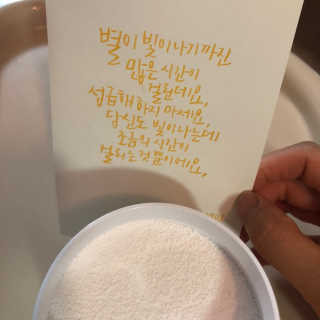 별이 빛이나기까진
많은 시간이
걸린데요,
성급해하지 마세요,
당신도 빛이나는데
조금의 시간이
걸리는것뿐이에요,